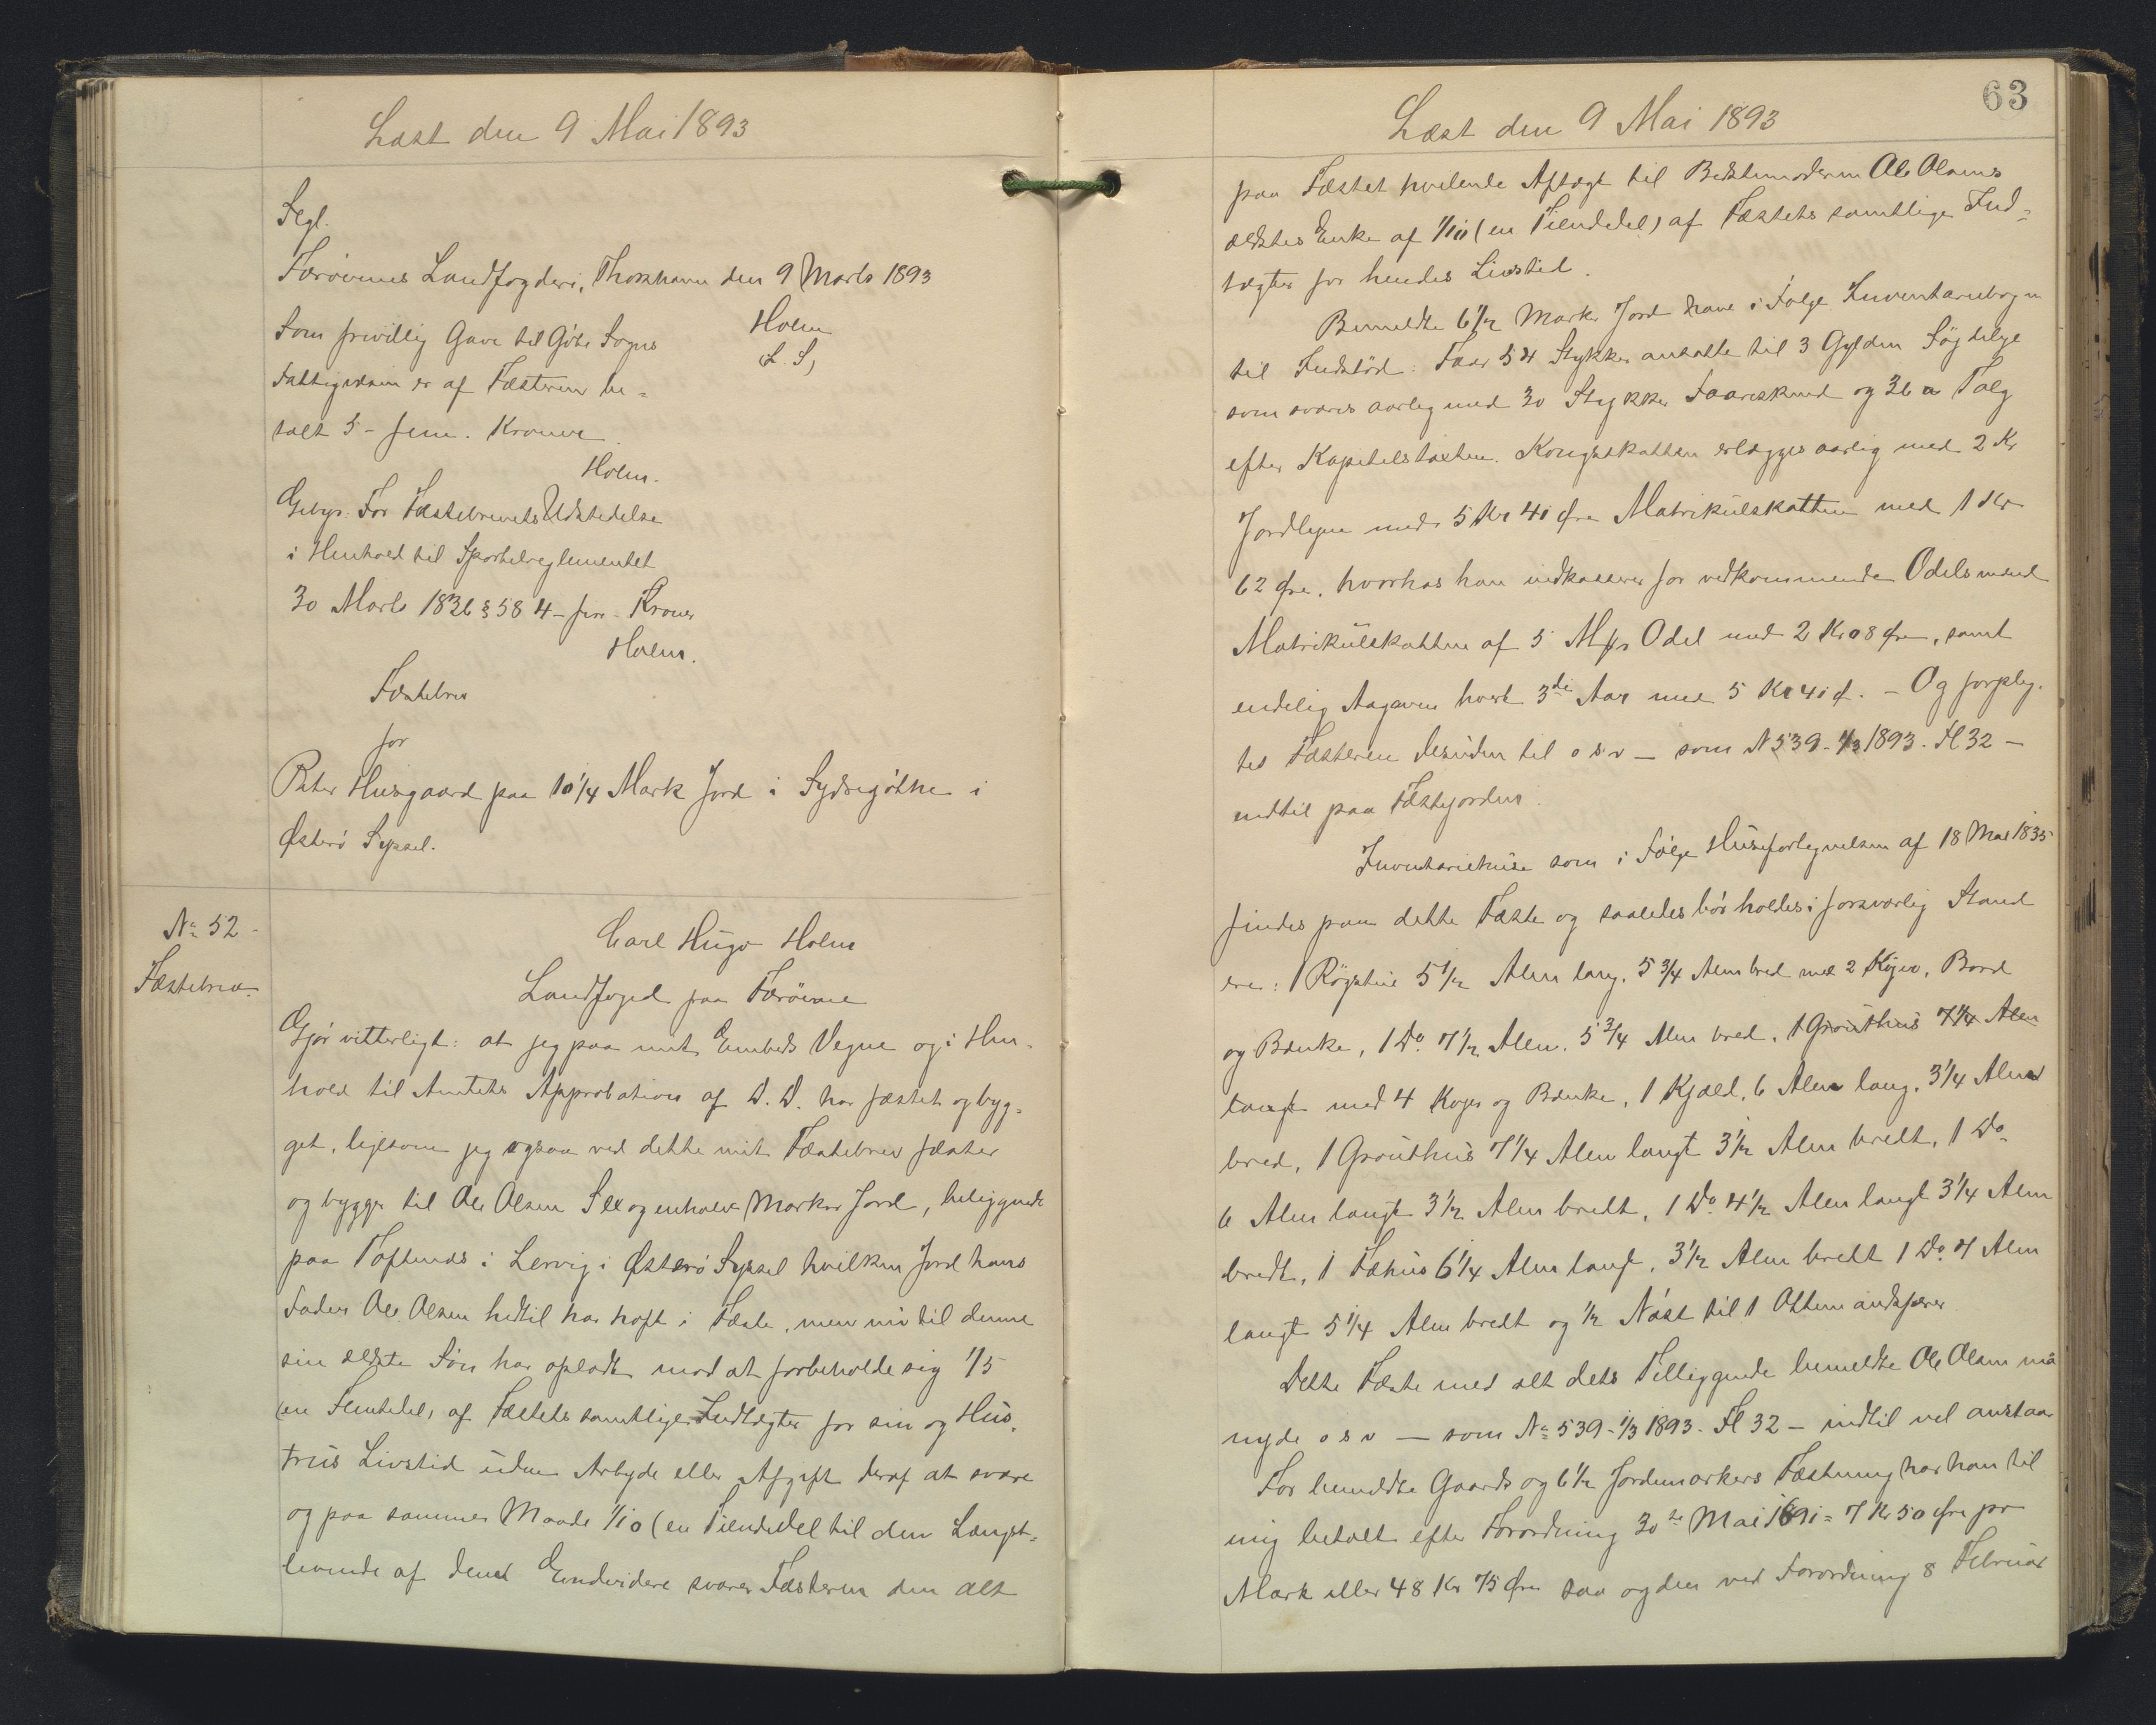 Læst den 9 Mai 1893
Segl.
Færøernes Landfogderi, Thorshavn den 9 Marts 1893
Holm
(L. S.)
Som frivillig Gave til Göte Sogns
Fattigvæsen er af Fæsteren be-
talt 5 - fem - Kroner.
Holm.
Gebyr. For Fæstebrevets Udstedelse
i Henhold til Sportelreglementet
30 Marts 1836 § 58 4 - fire - Kroner
Holm.
Fæstebrev
for
Peter Husgaard paa 10 1/4 Mark Jord i Sydregöthe i
Østerö Syssel.
No 52
Fæstebrev.
Carl Hugo Holm
Landfoged paa Færöerne
Gjör vitterligt: at jeg paa mit Embeds Vegne og i Hen-
hold til Amtets Approbation af D. D. har fæstet og byg-
get, ligesom jeg ogsaa ved dette mit Fæstebrev fæster
og bygger til Ole Olsen Sex og enhalv Marker Jord, beliggende
paa Toftenæs i Lervig i Østerö Syssel hvilken Jord hans
Fader Ole Olsen hidtil har haft i Fæste, men nu til denne
sin ældste Sön har opladt mod at forbeholde sig 1/5
(en Femtedel) af Fæstets samtlige Indtægter for sin og Hus-
trus Livstid uden Arbejde eller Afgift deraf at svare
og paa samme Maade 1/10 (en Tiendedel til den Længst-
levende af dem. Endvidere svarer Fæsteren den alt
63
Læst den 9 Mai 1893
paa Fæstet hvilende Aftægt til Bedstemoderen Ole Olsens
ældstes Enke af 1/10 (en Tiendedel) af Fæstets samtlige Ind-
tægter for hendes Livstid.
Bemeldte 6 1/2 Marker Jord have i Fölge Inventariebogen
til Indstöd: Faar 54 Stykker ansatte til 3 Gylden
som svares aarlig med 30 Stykker Faareskind og 36 Talg
efter Kapitelstaxten. Kongsskatten erlægges aarlig med 2 Kr
Jordlejen med 5 Kr 40 Øre Matrikulskatten med 1 Kr
62 Øre, hvorhos han indkasserer for vedkommende Odelsmænd
Matrikulskatten af 5 Mrk Odel med 2 Kr 08 Øre, samt
endelig Aagaven hvert 3die Aar med 5 Kr 40 Ø. - Og forplig-
tes Fæsteren desuden til o s v - som N 539 - 1/3 1893. Fl 32 -
indtil paa Fæstejorden.
Inventariehuse som i Fölge Huusefortegnelsen af 18 Mai 1835
findes paa dette Fæste og saaledes bör holdes i forsvarlig Stand
ere: 1 Rögstue 5 1/2 Alen lang, 5 3/4 Alen bred med 2 Köjer, Bord
og Bænke, 1 Do 7 1/2 Alen, 5 3/4 Alen bred, 1 Grouthus 7 1/4 Alen
langt med 4 Köjer og Bænke, 1 Kjæld, 6 Alen lang, 3 1/4 Alen
bred, 1 Grouthus 7 1/4 Alen langt 3 1/2 Alen bredt, 1 Do
6 Alen langt 3 1/2 Alen bredt, 1 Do 4 1/2 Alen langt 3 1/4 Alen
bredt, 1 Fæhus 6 1/4 Alen langt, 3 1/2 Alen bredt 1 Do 7 Alen
langt 5 1/4 Alen bredt og 1/2 Nöst til 1 Ottemandsfarer
Dette Fæste med alt dets Tilliggende bemeldte Ole Olsen maa
nyde o s v - som No 539 - 1/3 1893. Fl 32 - indtil vel anstaar
For bemeldte Gaards og 6 1/2 Jordmarkers Fæstning har han til
mig betalt efter Forordning 30te Mai 1691 = 7 Kr 50 Øre pr
Mark eller 48 Kr 75 Øre saa og den ved Forordning 8 Februar